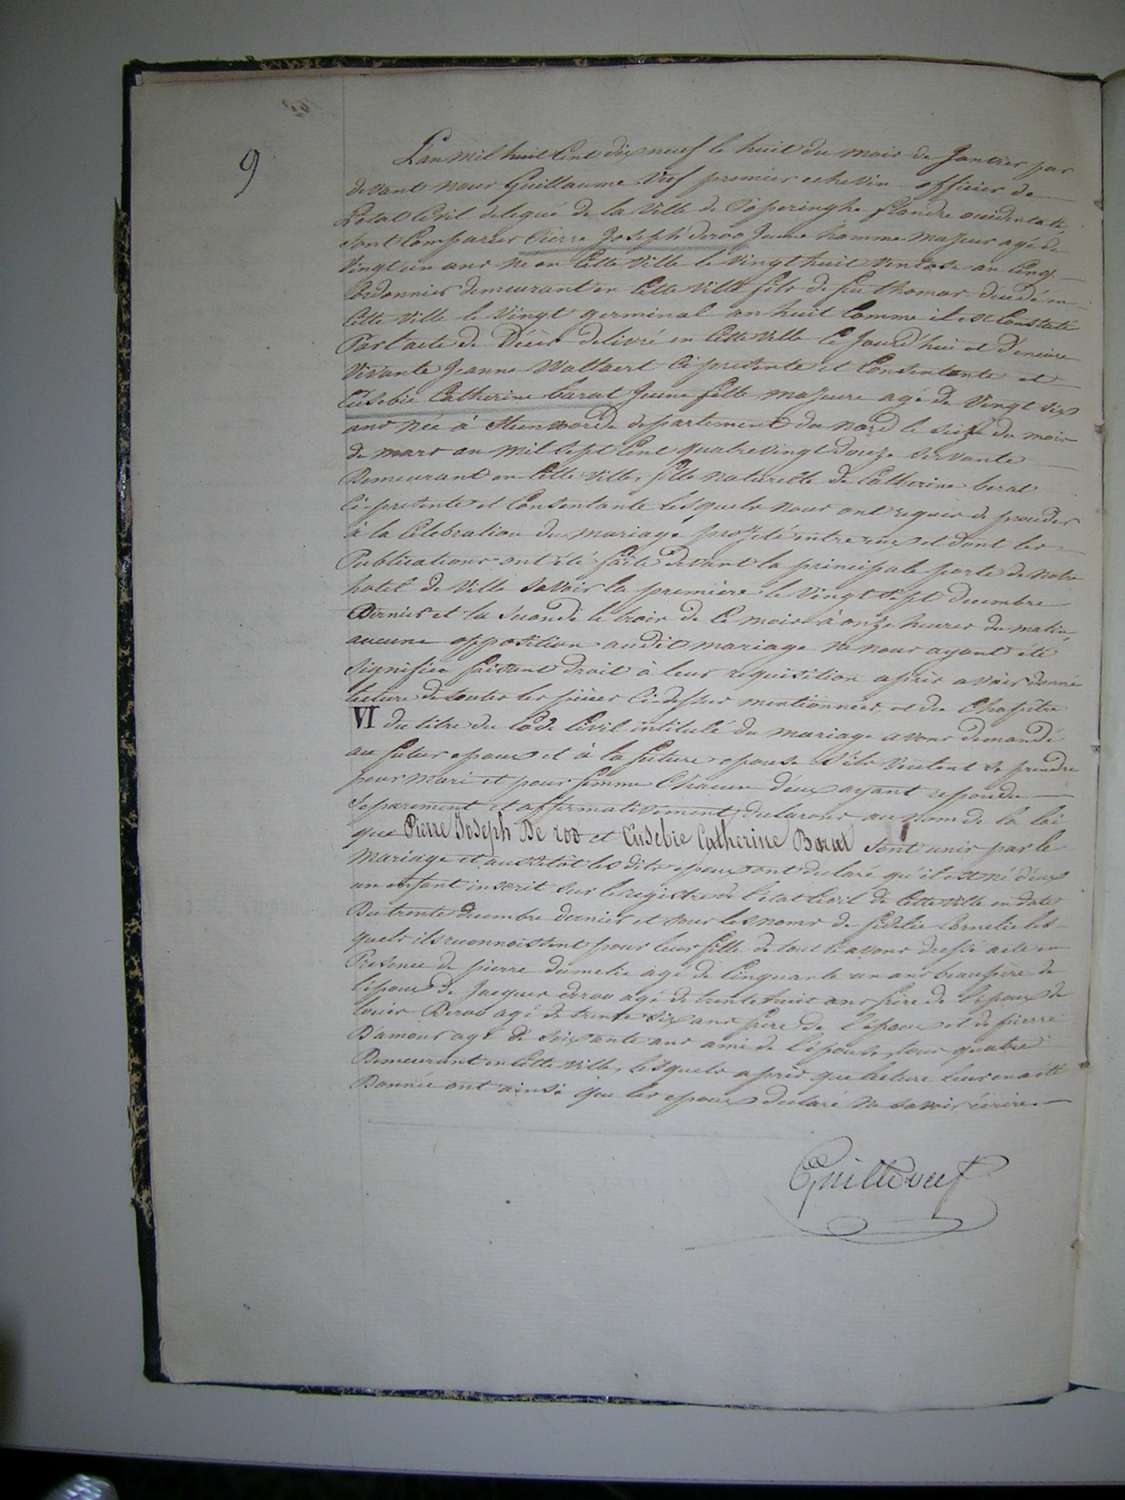 9
L'an mil huit Cent dix neuf le huit du mois de Janvier par
devant nous Guillaume Vief premier echevin officier de
l'etat Civil delegué de la Ville de Poperinghe flandre occidentale,
sont Comparus Pierre Joseph deroo Jeune homme majeur agé de
Vingt un ans né en Cette Ville le Vingt huit Ventose an Cinq
Cordonnier demeurant en Cette Ville fils de feu thomas decedé en
Cette Ville le Vingt germinal an huit Comme il est Constaté
Par l'acte de Décès delivré en Cette Ville Ce Jourd'hui et D'encore
Vivante Jeanne Wallaert Ci presente et Consentante et
Eusebie Catherine barat Jeune fille majeure agé de Vingt six
ans née à Steenvorde departement du Nord le Seize du mois
de mars an mil Sept Cent quatre vingt douze Servante
Demeurant en Cette Ville, fille naturelle de Catherine berat
Ci-presente et Consentante lesquels nous ont requis de proceder
à la Celebration du mariage projeté entre eux et dont les
Publications ont été faite devant la principale porte de notre
hotel de Ville Savoir la premiere le Vingt Sept decembre
Dernier et la Seconde le trois de Ce mois à onze heures du matin,
aucune opposition audit mariage ne nous ayant été
Signifiée faisant droit à leur requisition après avoir donné
lecture de toutes les pièces Ci-dessus mentionnées et du Chapitre
VI du titre du Code Civil intitulé du mariage avons demandé
au futur epoux et à la future epouse S'ils veulent se prendre
pour mari et pour femme Chacun d'eux ayant repondu
Separement et affirmativement declarons au nom de la loi
que Pierre Joseph De roo et Eusebie Catherine Barat Sont unis par le
Mariage et aussitôt les dits epoux ont declaré qu'il est né d'eux
un enfant inscrit Sur le registre de l'etat Civil de Cette Ville en date
Du trente decembre dernier et sous les noms de fidelie Cornelie les-
quels ils reconnoissent pour leur fille de tout Ce avons dressé acte en
Presence de pierre dumelie agé de Cinquante un ans beaupère de
l'epoux de Jacques deroo agé de trente huit ans frère de l'epoux de
louis Deroo agé de trente six ans frere de l'époux et de pierre
Damour agé de Soixante ans ami de l'épouse, tous quatre
Demeurant en Cette Ville, lesquels après que lecture leur en a été
Donnée ont ainsi que les epoux declaré ne savoir écrire.
Guille Vief